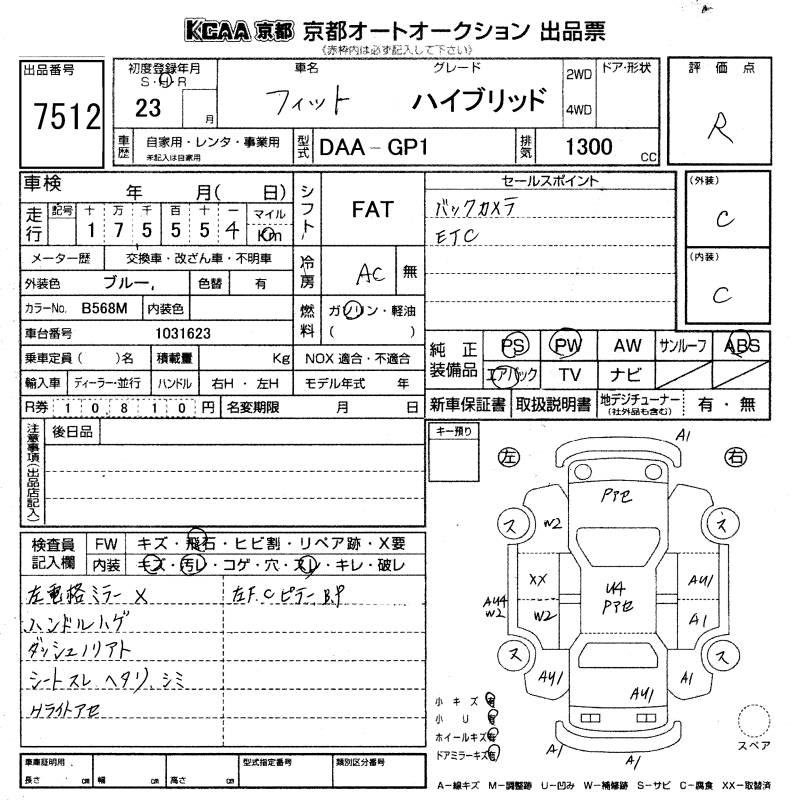 KCAA 京都 京都オートオークション 出品票
《赤枠内は必ず記入して下さい》
出品番号
7512
初度登録年月
S・H・R
23 月
車名
フィット
グレード
ハイブリッド
2WD
4WD
ドア・形状
評価点
R
車歴
自家用・レンタ・事業用
未記入は自家用
型式
DAA-GP1
排気
1300 CC
車検 年 月( 日)
走行
記号 十 万 千 百 十 一 マイル
1 7 5 5 5 4 Km
メーター歴 交換車・改ざん車・不明車
外装色 ブルー, 色替 有
カラーNo. B568M 内装色
車台番号 1031623
乗車定員( )名 積載量 Kg
輸入車 ディーラー・並行 ハンドル 右H・左H
R券 10,810円 名変期限 月 日
シフト FAT
冷房 AC 無
燃料 ガソリン・軽油
( )
NOX 適合・不適合
モデル年式 年
セールスポイント
バックカメラ
ETC
(外装)
C
(内装)
C
純正装備品
PS PW AW サンルーフ ABS
エアバック TV ナビ
新車保証書 取扱説明書 地デジチューナー (社外品も含む) 有・無
注意事項(出品店記入)
後日品
キー預り
検査員記入欄
FW キズ・飛石・ヒビ割・リペア跡・X要
内装 キズ・汚レ・コゲ・穴・スレ・キレ・破レ
左電格ミラー X
左F.Cピラー B.P
ハンドルハゲ
ダッシュノリアト
シートスレ、ヘタリ、シミ
Hライトアセ
左 右
A1
Pアセ
ス ス
W2
XX
U4
Pアセ
AU1
AU4
W2
W2
A1
ス ス
AU1
AU1
A1
A1
A1
小キズ 有
小U 有
ホイールキズ 有
ドアミラーキズ 有
スペア
車庫証明用
長さ cm 幅 cm 高さ cm
型式指定番号
類別区分番号
A-線キズ M-調整跡 U-凹み W-補修跡 S-サビ C-腐食 XX-取替済